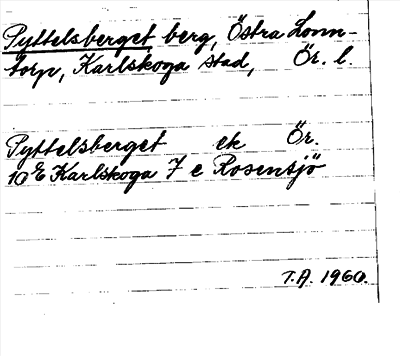 Pyttelsberget berg, Östra Lonn-
torp, Karlskoga stad, Ör. l.
Pyttelsberget ek Ör.
10E Karlskoga 7 e Rosensjö
T.A. 1960.